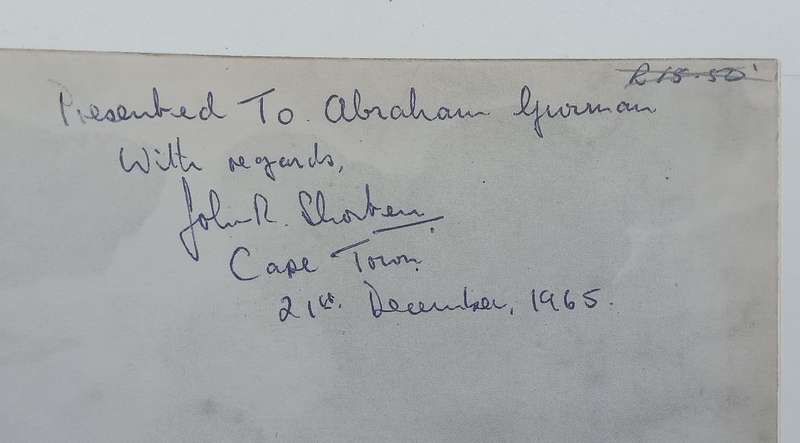 R15.50
Presented To. Abraham Gurman
With regards,
John R. Shorten.
Cape Town.
21st. December, 1965.